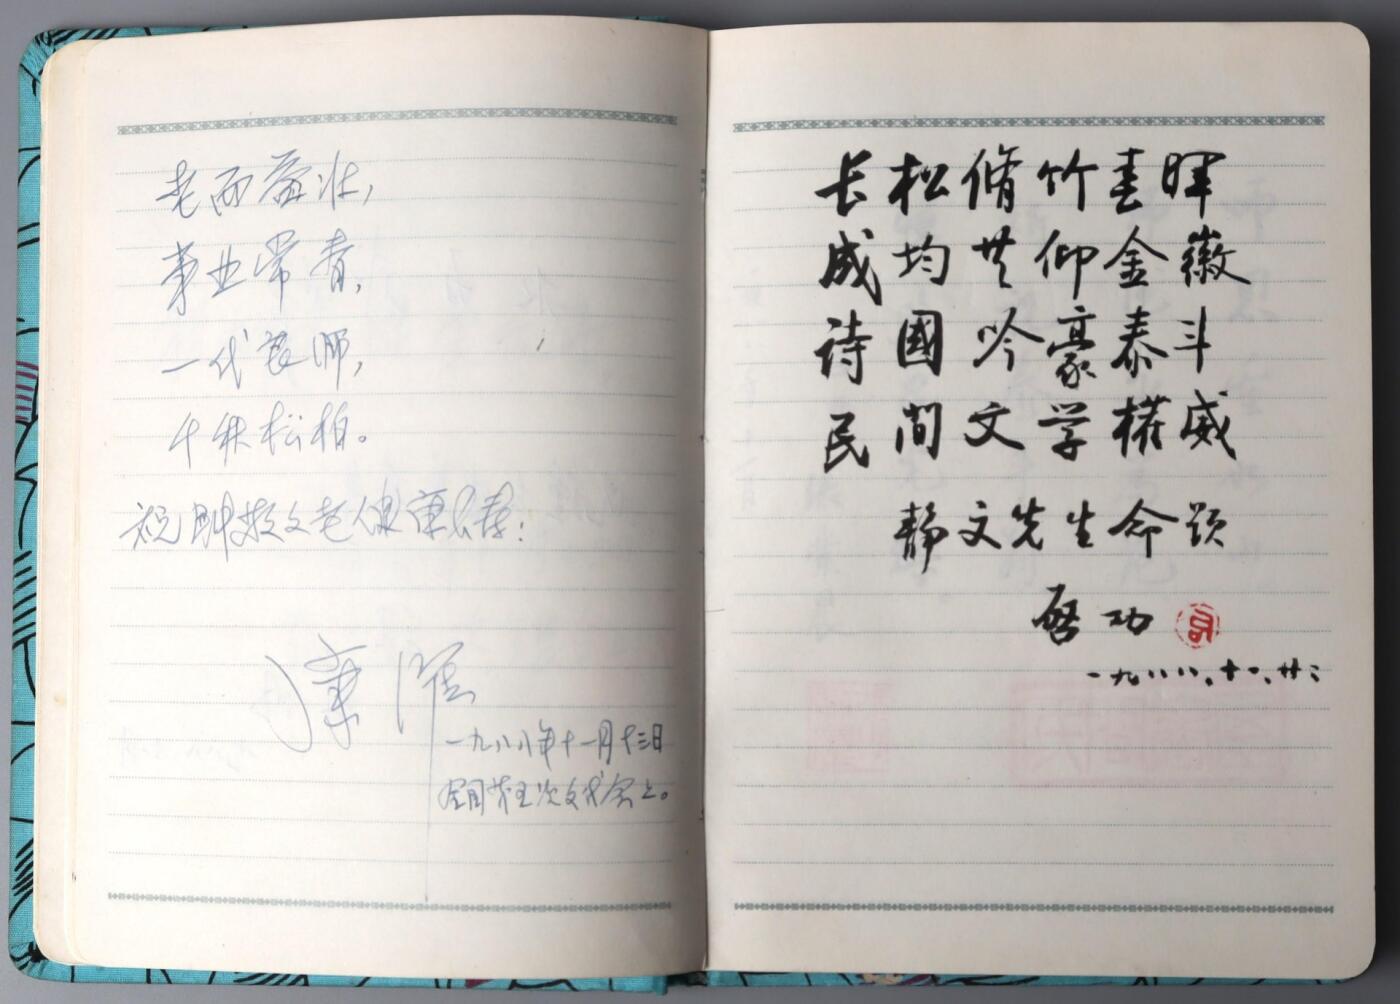 老而益壮，
事业常青，
一代良师，
千秋松柏。
祝钟敬文老人健康长寿！
一九八八年十一月十三日
全国第五次文代会上。
长松脩竹春晖
成均共仰金徽
诗国吟豪泰斗
民间文学权威
静文先生命题
启功
一九八八、十一、廿二